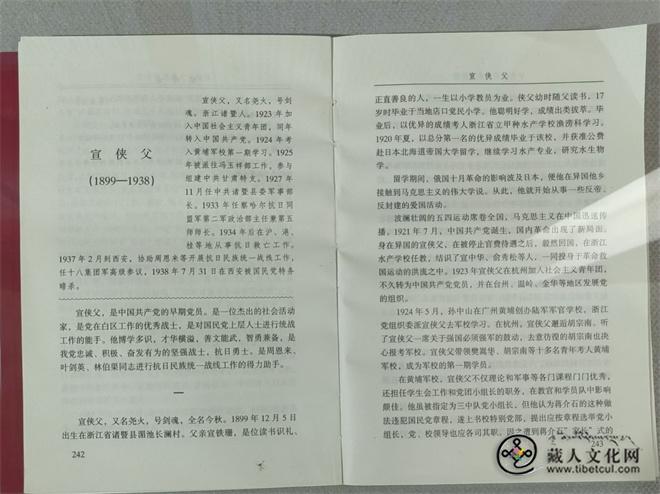 宣侠父
(1899—1938)
宣侠父，又名尧火，号剑
魂，浙江诸暨人。1923年加
入中国社会主义青年团，同年
转入中国共产党。1924年考
入黄埔军校第一期学习。1925
年被派往冯玉祥部工作，参与
组建中共甘肃特支。1927年
11月任中共诸暨县委军事部
长。1933年任察哈尔抗日同
盟军第二军政治部主任兼第五
师师长。1934年后在沪、港、
桂等地从事抗日救亡工作。
1937年2月到西安，协助周恩来等开展抗日民族统一战线工作，
任十八集团军高级参议，1938年7月31日在西安被国民党特务
暗杀。
宣侠父，是中国共产党的早期党员。是一位杰出的社会活动
家，是党在白区工作的优秀战士，是对国民党上层人士进行统战
工作的能手。他博学多识，才华横溢，善文能武，智勇兼备，是
我党忠诚、积极、奋发有为的坚强战士，抗日勇士。是周恩来、
叶剑英、林伯渠同志进行抗日民族统一战线工作的得力助手。
一
宣侠父，又名尧火，号剑魂，全名今秋。1899年12月5日
出生在浙江省诸暨县湄池长澜村。父亲宣铁珊，是位读书识礼、
242
宣侠父
正直善良的人，一生以小学教员为业。侠父幼时随父读书。17
岁时毕业于当地店口党民小学。他聪明好学，成绩出类拔萃。毕业
后，以优异的成绩考入浙江省立甲种水产学校渔捞科学习。
1920年夏，以总分第一名的优异成绩毕业于该校，并获准公费
赴日本北海道帝国大学留学，继续学习水产专业，研究水生物
学。
留学期间，俄国十月革命的影响波及日本，便他在异国他乡
接触到马克思主义的伟大学说。从此，他就开始从事一些反帝、
反封建的爱国活动。
波澜壮阔的五四运动席卷全国，马克思主义在中国迅速传
播。1921年7月，中国共产党诞生，国内革命出现了新局面。
身在异国的宣侠父，在被停止官费待遇之后，毅然回国，在浙江
水产学校任教，结识了宣中华、俞秀松等人，一同投身于革命救
国运动的洪流之中。1923年宣侠父在杭州加入社会主义青年团，
不久转为中国共产党党员，并在台州、温岭、金华等地区发展党
的组织。
1924年5月，孙中山在广州黄埔创办陆军军官学校，浙江
党组织委派宣侠父去军校学习。在杭州，宣侠父邂逅胡宗南。听
了宣侠父一席关于强国必须强军的鼓动，去意彷徨的胡宗南也决
心报考军校。宣侠父带领樊嵩华、胡宗南等十多名青年考入黄埔
军校，成为军校的第一期学员。
在黄埔军校，宣侠父不仅理论和军事等各门课程门门优秀，
还担任学生会工作和党团小组长的职务，在教官和学员队中影响
颇佳。他虽被指定为三中队党小组长，但他认为蒋介石的这种做
法违犯国民党章程，遂上书校特别党部，提出应按章程选举党小
组长，党、校领导也应各司其职。因之遭到蒋介石“家长”式的
243
藏人文化网
www.tibetcul.com